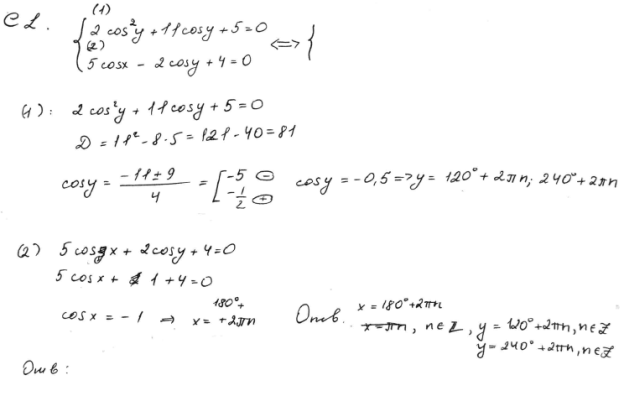 С1. { (1) 2 cos²y + 11cosy + 5 = 0 <=> {
(2) 5 cosx - 2cosy + 4 = 0
(1): 2 cos²y + 11cosy + 5 = 0
D = 11² - 8·5 = 121 - 40 = 81
cosy = (-11 ± 9)/4 = [-5 ⊖ ; -1/2 ⊕ cosy = -0,5 => y = 120° + 2πn; 240° + 2πn
(2) 5 cosx + 2cosy + 4 = 0
5 cosx + 1 + 4 = 0
cosx = -1 => x = 180° + 2πn
Отв. x = 180° + 2πn, n ∈ Z, y = 120° + 2πn, n ∈ Z
y = 240° + 2πn, n ∈ Z
Отв: